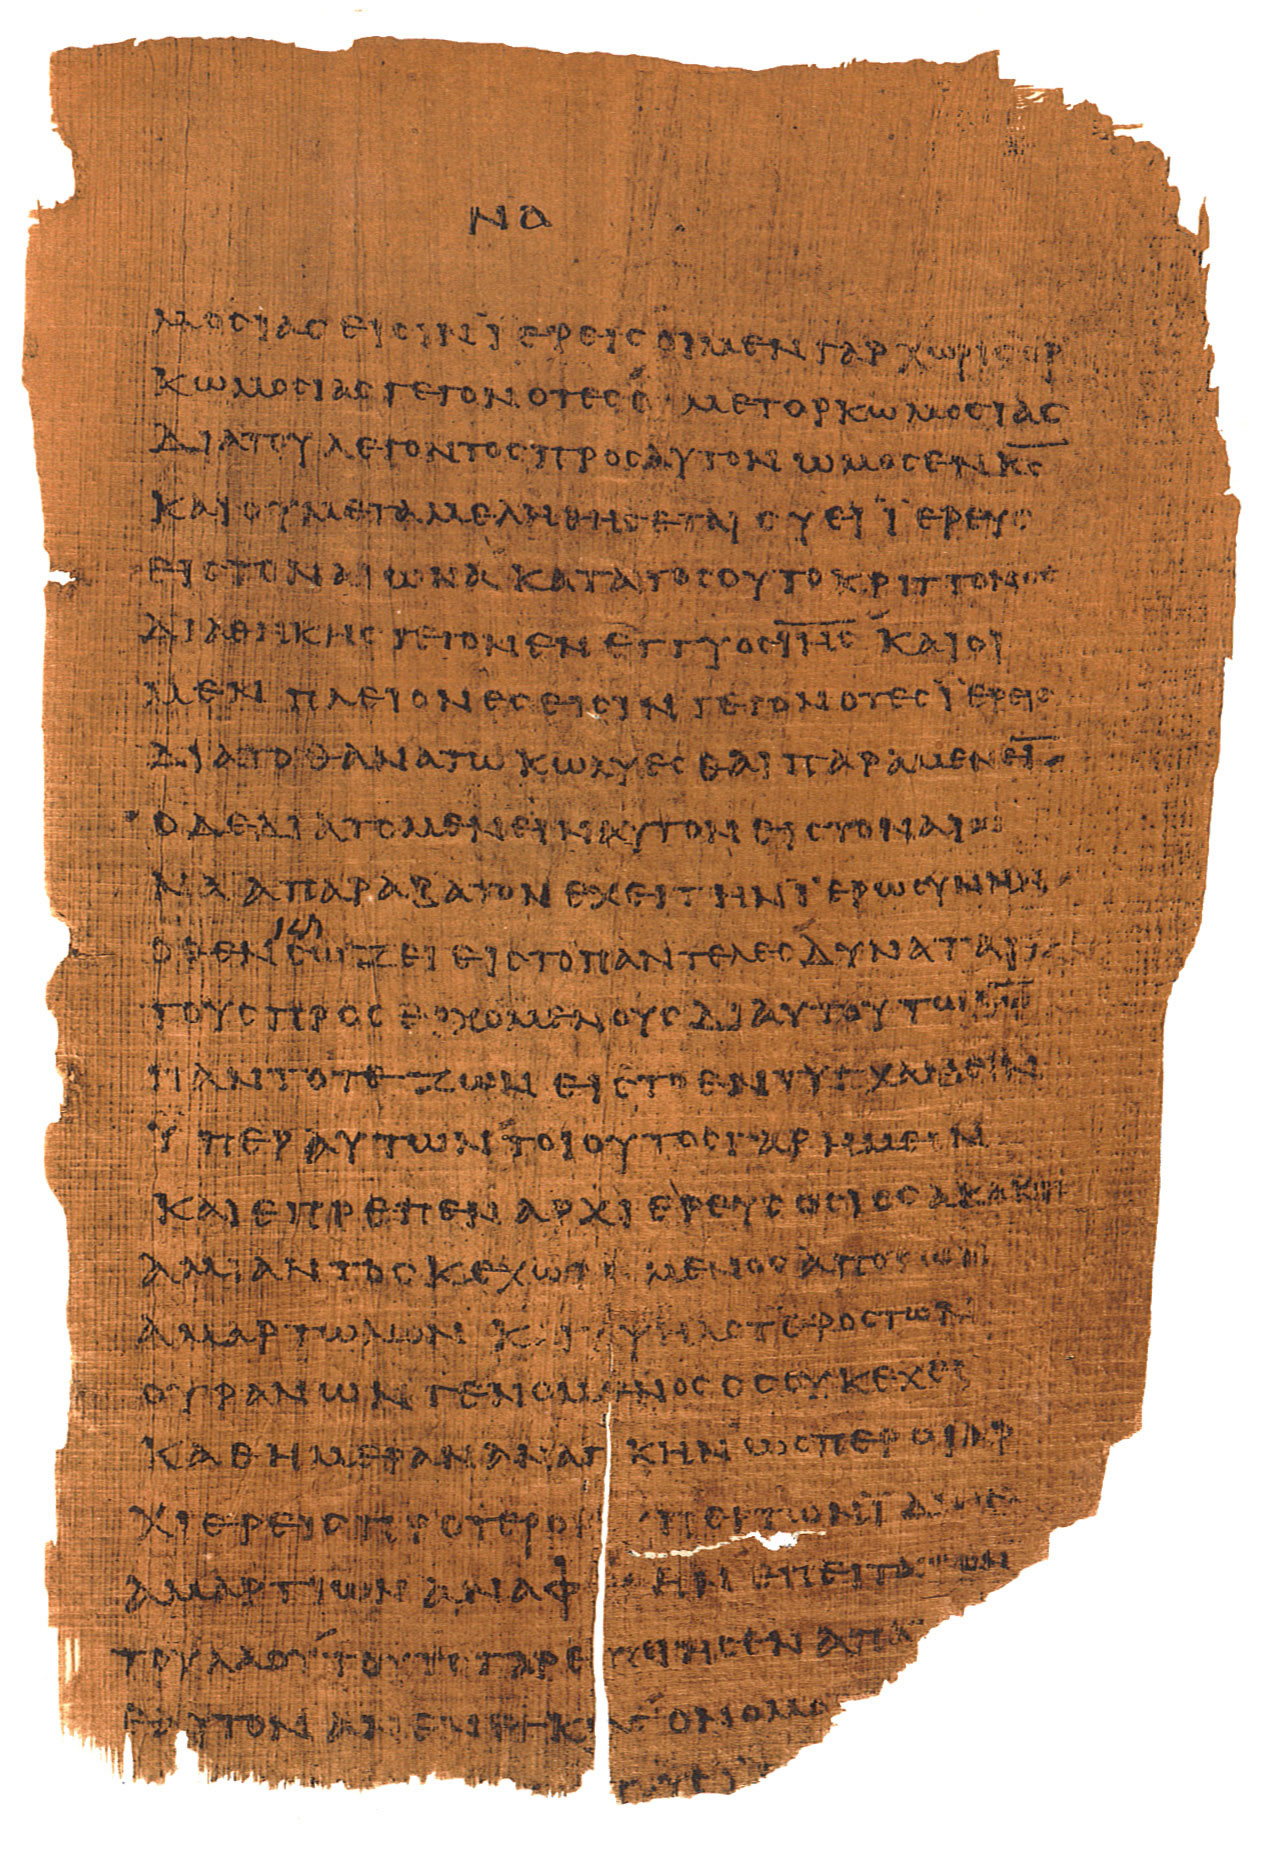 ΝΑ
ΜΟΣΙΑΣ ΕΙΣΙΝ ΪΕΡΕΙΣ ΟΙ ΜΕΝ ΓΑΡ ΧΩΡΙΣ ΟΡ
ΚΩΜΟΣΙΑΣ ΓΕΓΟΝΟΤΕΣ Ο ΜΕΤ ΟΡΚΩΜΟΣΙΑΣ
ΔΙΑ ΤΟΥ ΛΕΓΟΝΤΟΣ ΠΡΟΣ ΑΥΤΟΝ ΩΜΟΣΕΝ Κ̅Σ̅
ΚΑΙ ΟΥ ΜΕΤΑΜΕΛΗΘΗΣΕΤΑΙ ΣΥ ΕΙ ΪΕΡΕΥΣ
ΕΙΣ ΤΟΝ ΑΙΩΝΑ ΚΑΤΑ ΤΟΣΟΥΤΟ ΚΡΙΤΤΟΝΟΣ
ΔΙΑΘΗΚΗΣ ΓΕΓΟΝΕΝ ΕΓΓΥΟΣ Ι̅Η̅Σ̅ ΚΑΙ ΟΙ
ΜΕΝ ΠΛΕΙΟΝΕΣ ΕΙΣΙΝ ΓΕΓΟΝΟΤΕΣ ΪΕΡΕΙΣ
ΔΙΑ ΤΟ ΘΑΝΑΤΩ ΚΩΛΥΕΣΘΑΙ ΠΑΡΑΜΕΝΕΙ̅
Ο ΔΕ ΔΙΑ ΤΟ ΜΕΝΕΙΝ ΑΥΤΟΝ ΕΙΣ ΤΟΝ ΑΙΩ
ΝΑ ΑΠΑΡΑΒΑΤΟΝ ΕΧΕΙ ΤΗΝ ΪΕΡΩΣΥΝΗΝ
ΟΘΕΝ ΚΑΙ ΣΩΖΕΙ ΕΙΣ ΤΟ ΠΑΝΤΕΛΕΣ ΔΥΝΑΤΑΙ
ΤΟΥΣ ΠΡΟΣΕΡΧΟΜΕΝΟΥΣ ΔΙ ΑΥΤΟΥ ΤΩ Θ̅Ω̅
ΠΑΝΤΟΤΕ ΖΩΝ ΕΙΣ ΤΟ ΕΝΤΥΓΧΑΝΕΙΝ
ΫΠΕΡ ΑΥΤΩΝ ΤΟΙΟΥΤΟΣ ΓΑΡ ΗΜΕΙΝ
ΚΑΙ ΕΠΡΕΠΕΝ ΑΡΧΙΕΡΕΥΣ ΟΣΙΟΣ ΑΚΑΚΟΣ
ΑΜΙΑΝΤΟΣ ΚΕΧΩΡΙΣΜΕΝΟΣ ΑΠΟ ΤΩΝ
ΑΜΑΡΤΩΛΩΝ ΚΑΙ ΥΨΗΛΟΤΕΡΟΣ ΤΩΝ
ΟΥΡΑΝΩΝ ΓΕΝΟΜΕΝΟΣ ΟΣ ΟΥΚ ΕΧΕΙ
ΚΑΘ ΗΜΕΡΑΝ ΑΝΑΓΚΗΝ ΩΣΠΕΡ ΟΙ ΑΡ
ΧΙΕΡΕΙΣ ΠΡΟΤΕΡΟΝ ΠΕΡ ΤΩΝ ΪΔΙΩΝ
ΑΜΑΡΤΙΩΝ ΑΝΑΦ ΕΠΕΙΤΑ ΤΩΝ
ΤΟΥ ΛΑΟΥ ΤΟΥΤΟ ΓΑΡ ΕΠΟΙΗΣΕΝ ΑΠΑ
ΕΑΥΤΟΝ ΑΝΕΝΕΓΚΑΣ Ο ΝΟΜΟ